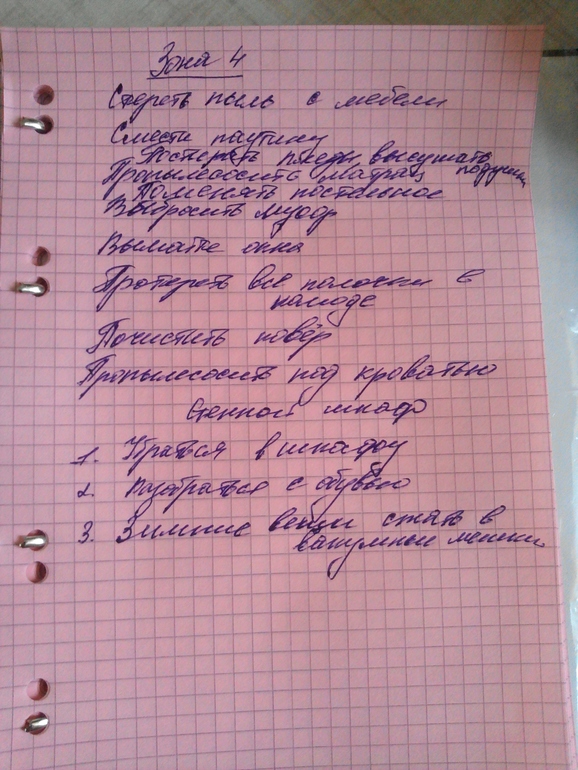 Зона 4
Стереть пыль с мебели
Смести паутину
Постирать пледы, высушать подушки
Пропылесосить матрац
Поменять постельное
Выбросить мусор
Вымыть окна
Протереть все полочки в
комоде
Почистить ковёр
Пропылесосить под кроватью
Стенной шкаф
1. Убраться в шкафу
2. Разобраться с обувью
3. Зимние вещи сжать в
вакумные мешки